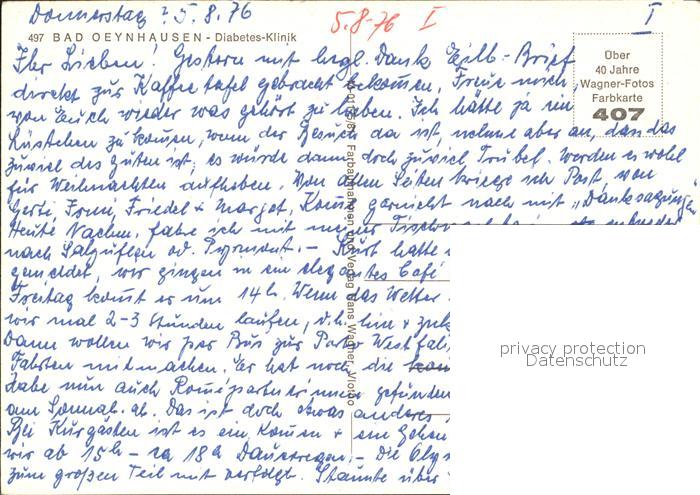 Donnerstag 5.8.76
5.8-76 I
I
497 BAD OEYNHAUSEN - Diabetes-Klinik
Über
40 Jahre
Wagner-Fotos
Farbkarte
407
Ihr Lieben! Gestern mit herzl. Dank Eilb-Brief
direkt zur Kaffeetafel gebracht bekommen, Freue mich,
von Euch wieder was gehört zu haben. Ich hätte ja ein
zu kommen, wenn der Besuch da ist, nehme aber an, dass das
zuviel des guten ist, es würde dann doch zuviel Trubel. Werden es wohl
für Weihnachten aufheben. Von allen Seiten kriege ich Post, von
Gerti, Friedel + Margot, Komme garnicht nach mit "Danksagungen"
Heute Nachm. fahre ich mit
nach Salzuflen od. Pyrmont. - Kurt hatte
wir gingen in ein elegantes Café
Freitag kommt er um 14h. Wenn das Wetter
wir mal 2-3 Stunden laufen, d.h. hin +
Dann wollen wir per Bus zur Porta Westfali
Fahrten mitmachen. Er hat noch die
habe nun auch gefunden
am Sonnab. ab. Das ist doch etwas anderes
Bei Kurgästen ist es ein Kommen + ein Gehen
wir ab 15h - ca 18h Dauerregen. - Die Olym
zum großen Teil mit verfolgt. Staunte über
privacy protection
Datenschutz